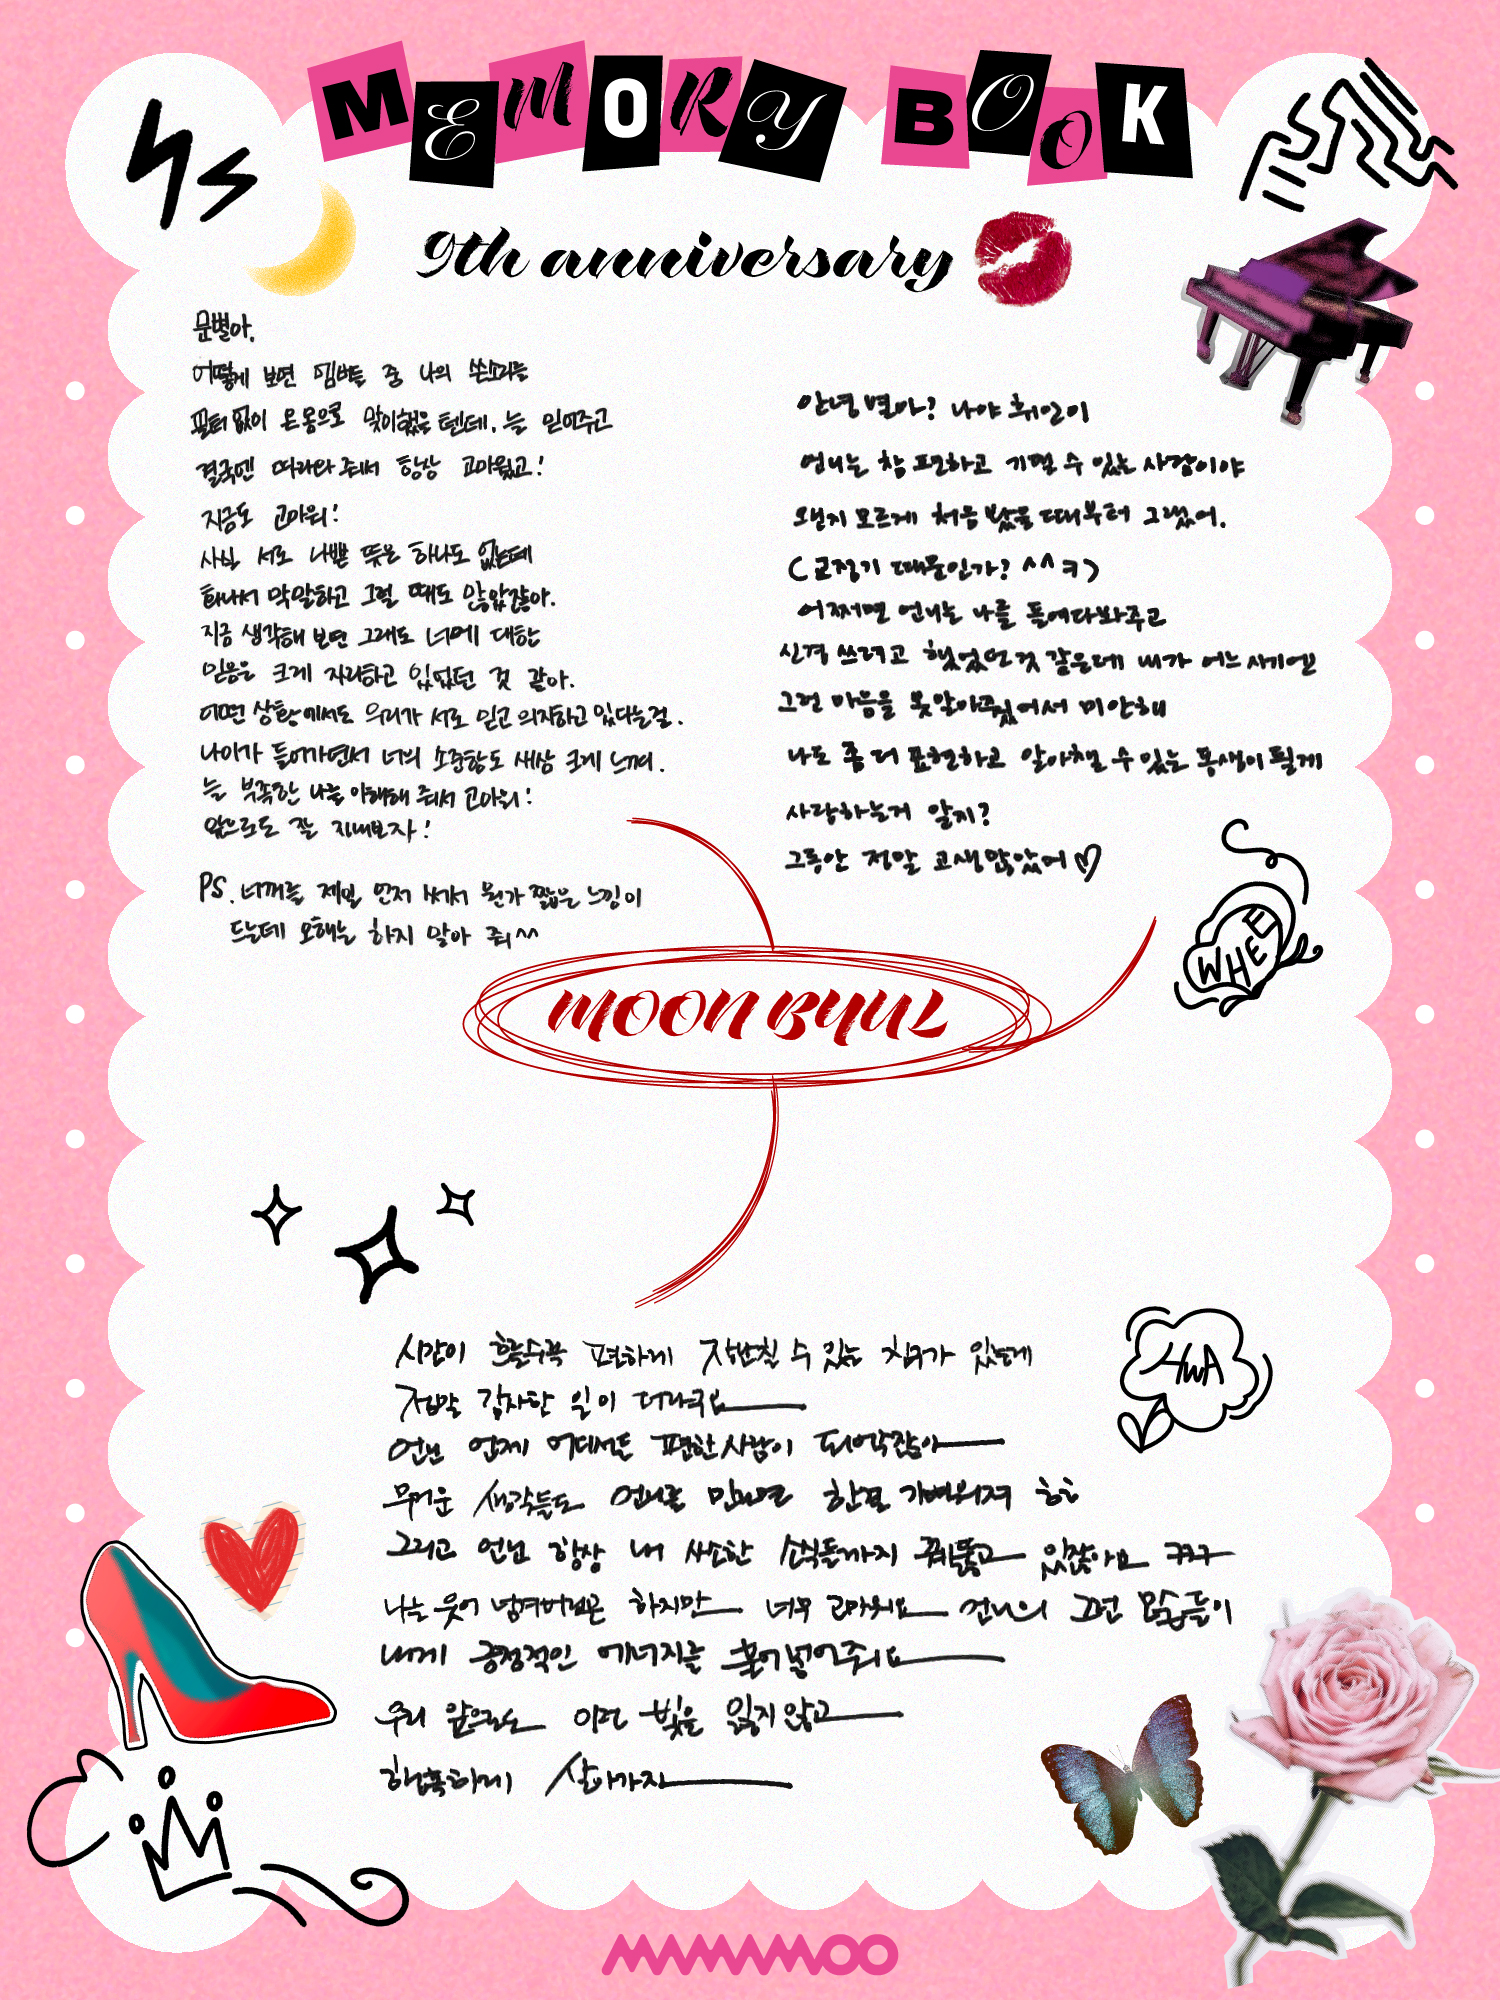 MEMORY BOOK
9th anniversary
문별아,
어떻게 보면 멤버들 중 나의 쓴소리를
필터 없이 온몸으로 맞이했을 텐데, 늘 믿어주고
결국엔 따라와 줘서 항상 고마웠고!
지금도 고마워!
사실 서로 나쁜 뜻은 하나도 없는데
화나서 막말하고 그럴 때도 많았잖아.
지금 생각해 보면 그래도 너에 대한
믿음은 크게 자리하고 있었던 것 같아.
어떤 상황에서도 우리가 서로 믿고 의지하고 있다는걸.
나이가 들어가면서 너의 소중함도 새삼 크게 느껴.
늘 부족한 나를 이해해 줘서 고마워!
앞으로도 잘 지내보자!
PS. 너꺼를 제일 먼저 써서 뭔가 짧은 느낌이
드는데 오해는 하지 말아 줘^^
안녕 별아? 나야 휘인이
언니는 참 편하고 기댈 수 있는 사람이야
왠지 모르게 처음 봤을 때부터 그랬어.
(교정기 때문인가? ^^ ㅋ)
어쩌면 언니는 나를 돌여다봐주고
신경 쓰려고 했었던것 같은데 내가 어느 시기엔
그런 마음을 못알아줬어서 미안해
나도 좀 더 표현하고 알아챌 수 있는 동생이 될게
사랑하는거 알지?
그동안 정말 고생많았어♡
WHEE
MOON BYUL
시간이 흐를수록 편하게 장난칠 수 있는 친구가 있는게
정말 감사한 일이 더라구요
언닌 언제 어디서든 편한사람이 되어줬잖아
무거운 생각들도 언니를 만나면 한결 가벼워져 ㅎㅎ
그리고 언닌 항상 내 사소한 소식들까지 꿰뚫고 있잖아요 ㅋㅋㅋ
나는 웃어 넘겨버리곤 하지만 너무 고마워요 언니의 그런 모습들이
내게 긍정적인 에너지를 불어넣어줘요
우리 앞으로도 이런 빛을 잃지 않고
행복하게 살아가자
HWA
MAMAMOO